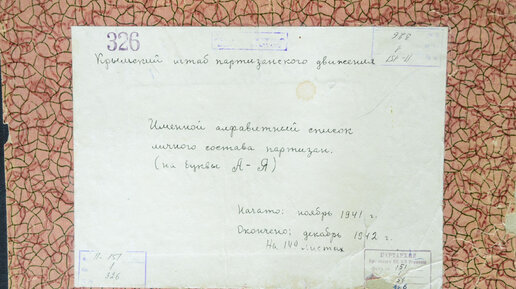 326
Крымский штаб партизанского движения
Именной алфавитный список
личного состава партизан.
(на буквы А - Я)
Начато: ноябрь 1941 г.
Окончено: декабрь 1942 г.
На 140 листах
П. 151
1
326
ПАРТАРХИВ
151